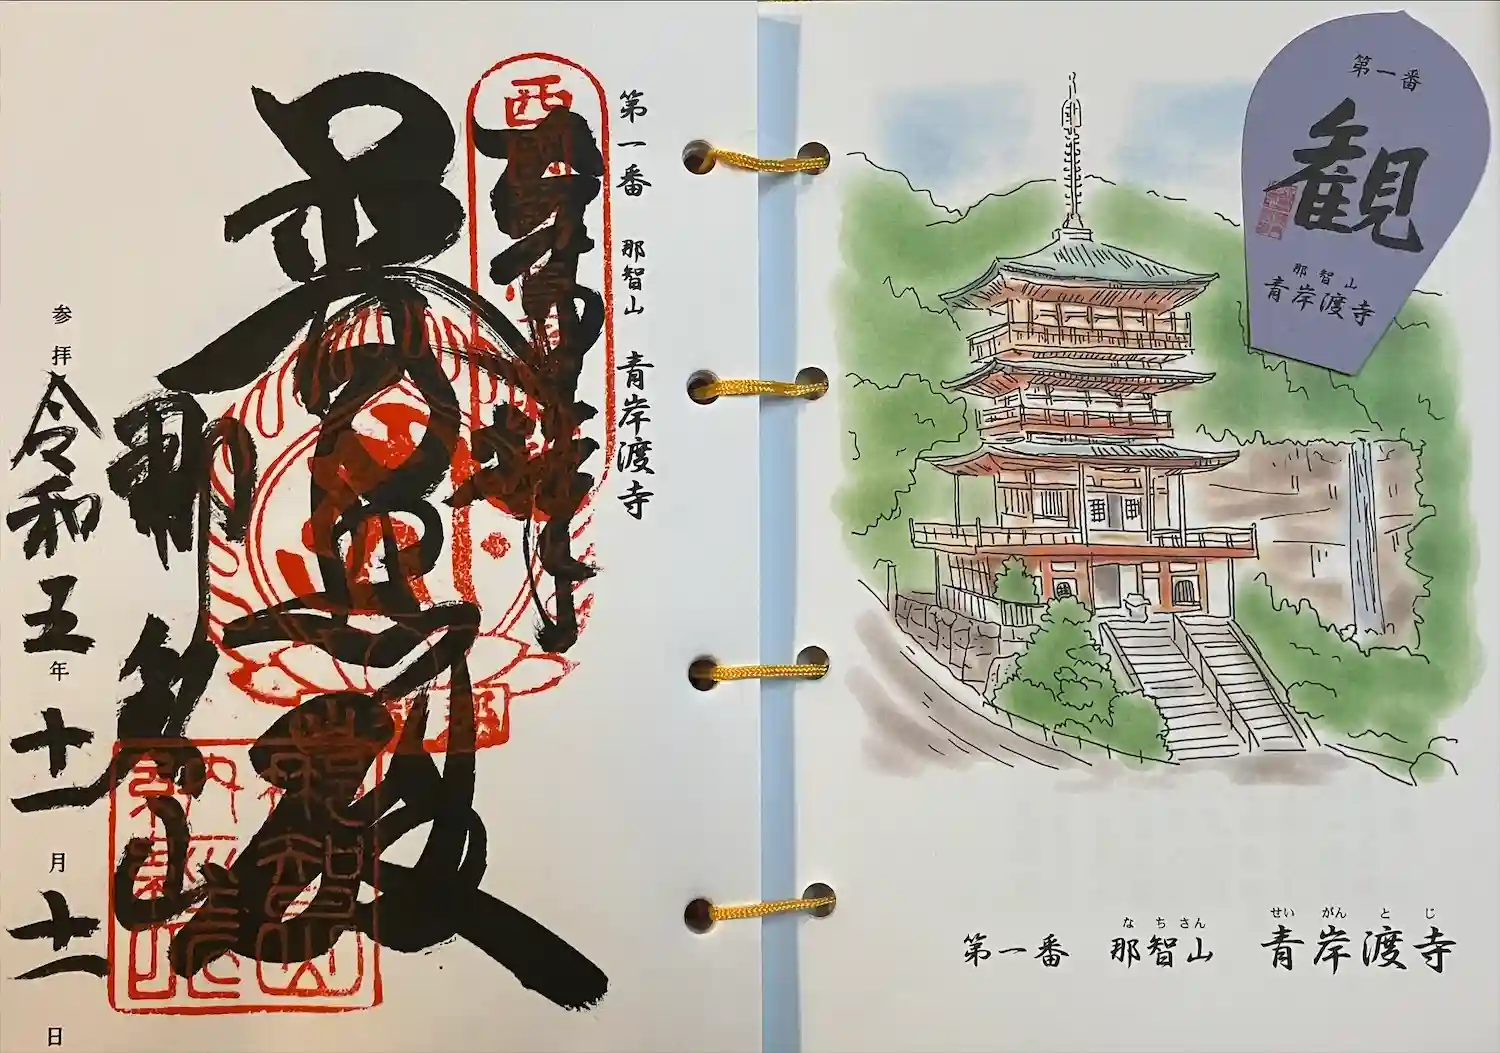 第一番 那智山 青岸渡寺
奉拝
普照殿
那智山
参拝 令和五年十一月十一日
第一番
観
那智山
青岸渡寺
なちさん せいがんとじ
第一番 那智山 青岸渡寺